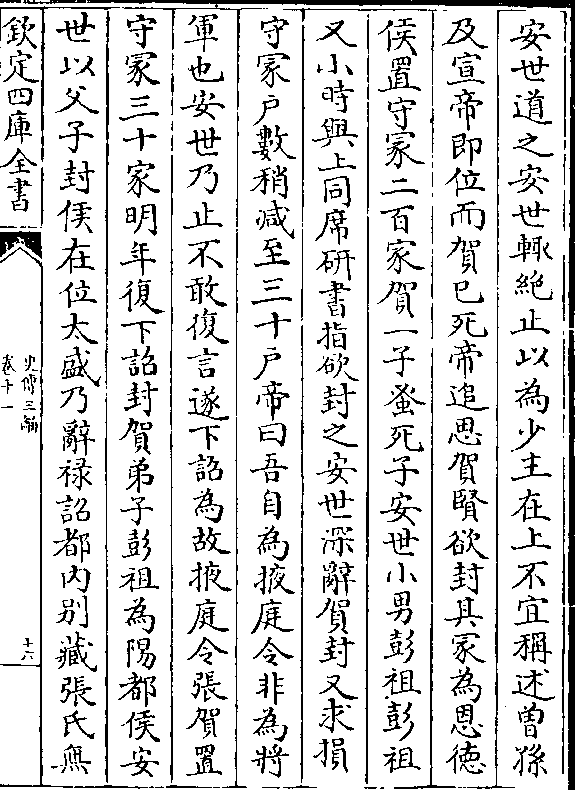 安世道之安世輒絶止以為少主在上不宜稱述曽孫
及宣帝即位而賀已死帝追思賀賢欲封其冢為恩徳
侯置守冢二百家賀一子蚤死子安世小男彭祖彭祖
又小時與上同席研書指欲封之安世深辭賀封又求損
守冢户數稍减至三十户帝曰吾自為掖庭令非為將
軍也安世乃止不敢復言遂下詔為故掖庭令張賀置
守冢三十家明年復下詔封賀弟子彭祖為陽都侯安
世以父子封侯在位太盛乃辭禄詔都内别藏張氏無
欽定四庫全書
史傳三編
卷十一
十六